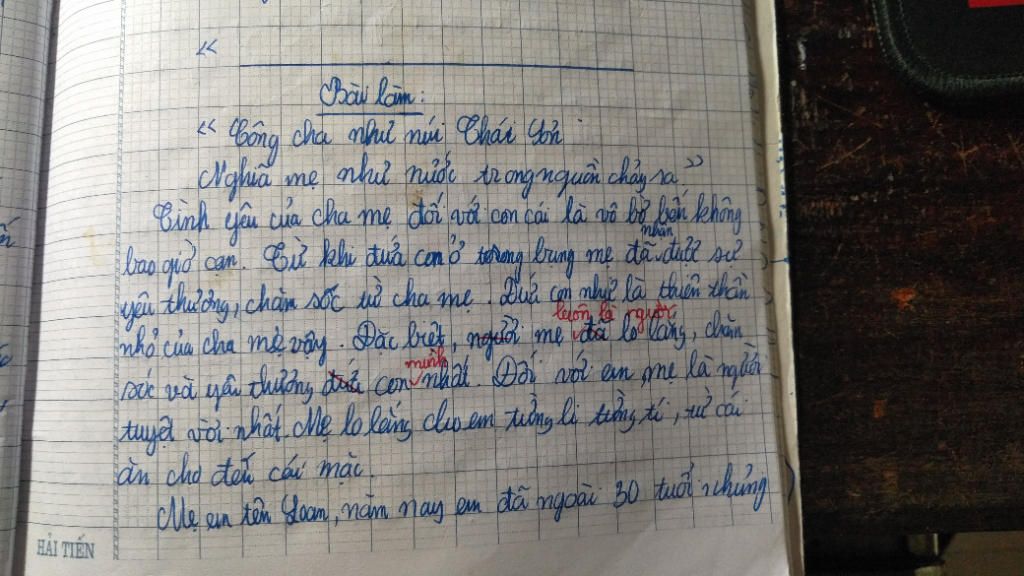 "
Bài làm:
" Công cha như núi Thái Sơn
Nghĩa mẹ như nước trong nguồn chảy ra."
Tình yêu của cha mẹ đối với con cái là vô bờ bến không
nhận
bao giờ cạn. Từ khi đứa con ở trong bụng mẹ đã được sự
yêu thương, chăm sóc từ cha mẹ. Đứa con như là thiên thần
luôn là người
nhỏ của cha mẹ vậy. Đặc biệt, người mẹ đã lo lắng, chăm
mình
sóc và yêu thương đứa con nhất. Đối với em, mẹ là người
tuyệt vời nhất. Mẹ lo lắng cho em từng li từng tí, từ cái
ăn cho đến cái mặc.
Mẹ em tên Loan, năm nay em đã ngoài 30 tuổi nhưng
HẢI TIẾN